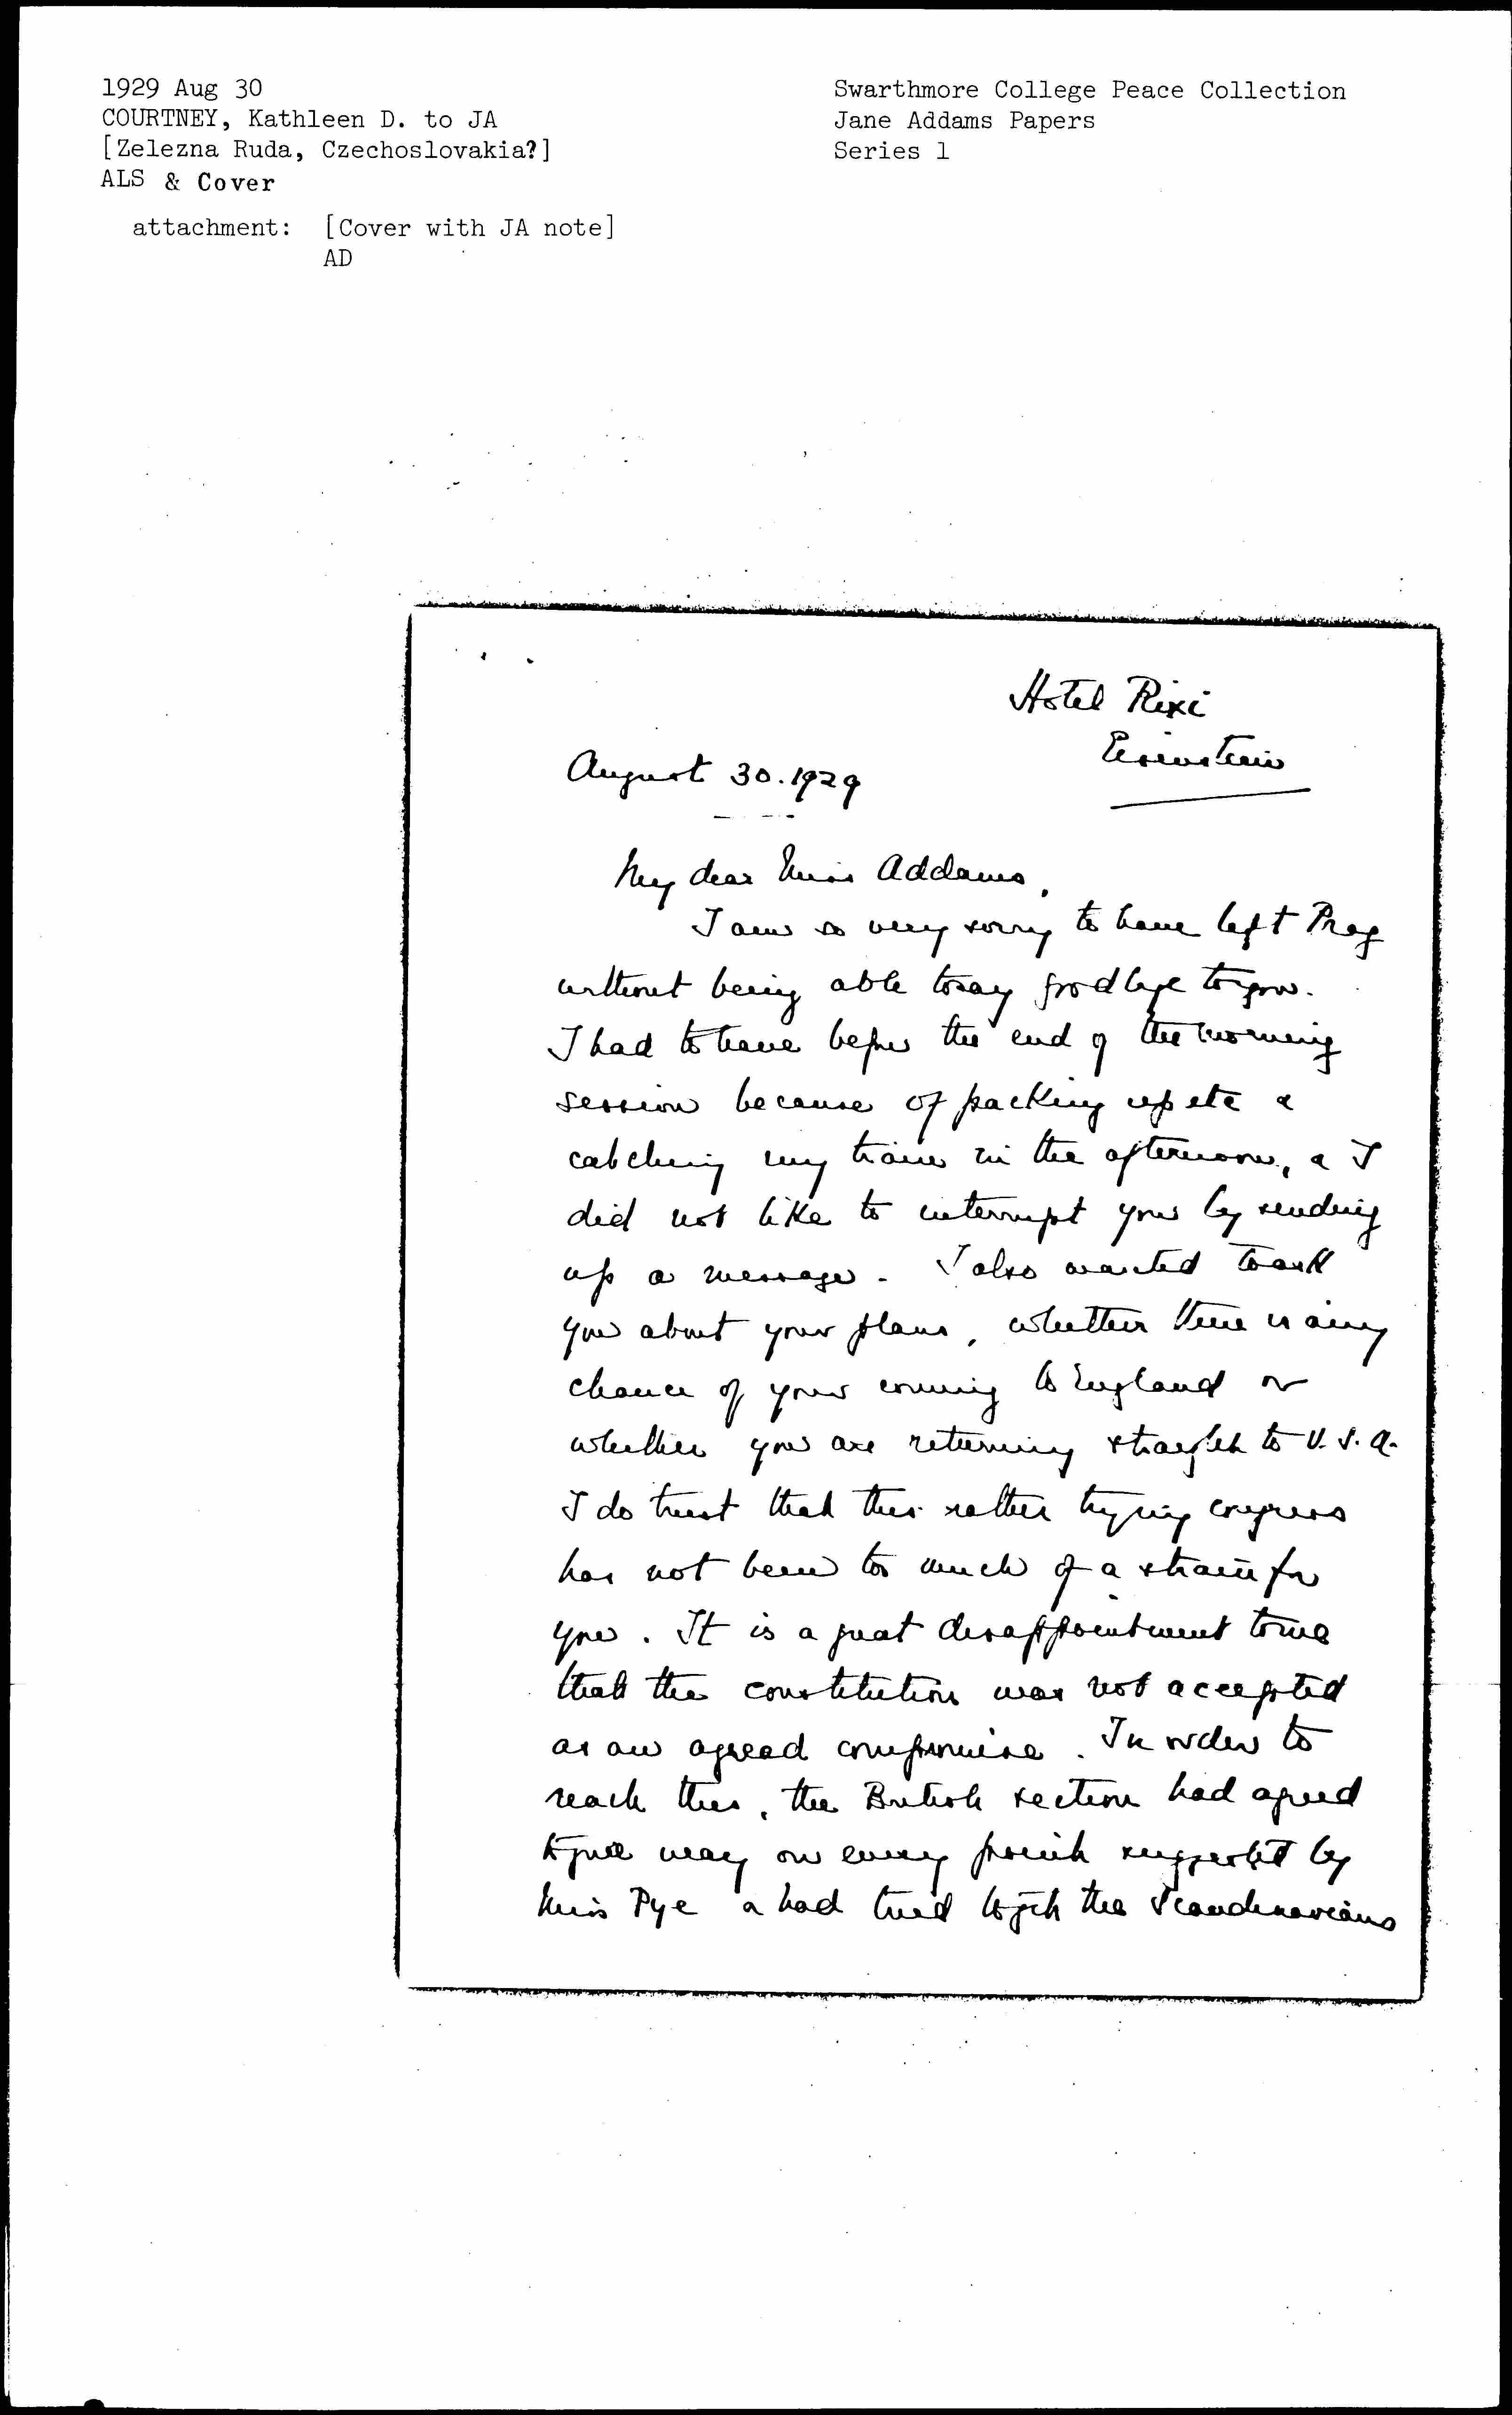 1929 Aug 30
COURTNEY, Kathleen D. to JA
[Zelezna Ruda, Czechoslovakia?]
ALS & Cover
attachment: [Cover with JA note]
AD
Swarthmore College Peace Collection
Jane Addams Papers
Series 1
Hotel Rixi
Eisenstein
August 30. 1929
My dear Miss Addams,
I am so very sorry to have left Prag
without being able to say goodbye to you.
I had to leave before the end of the morning
session because of packing up etc &
catching my train in the afternoon, & I
did not like to interrupt you by sending
up a message. I also wanted to ask
you about your plans, whether there is any
chance of your coming to England or
whether you are returning straight to U.S.A.
I do trust that this rather trying congress
has not been too much of a strain for
you. It is a great disappointment to me
that the constitution was not accepted
as an agreed compromise. In order to
reach this, the British section had agreed
to give way on every point suggested by
Miss Pye & had tried to get the Scandinavians